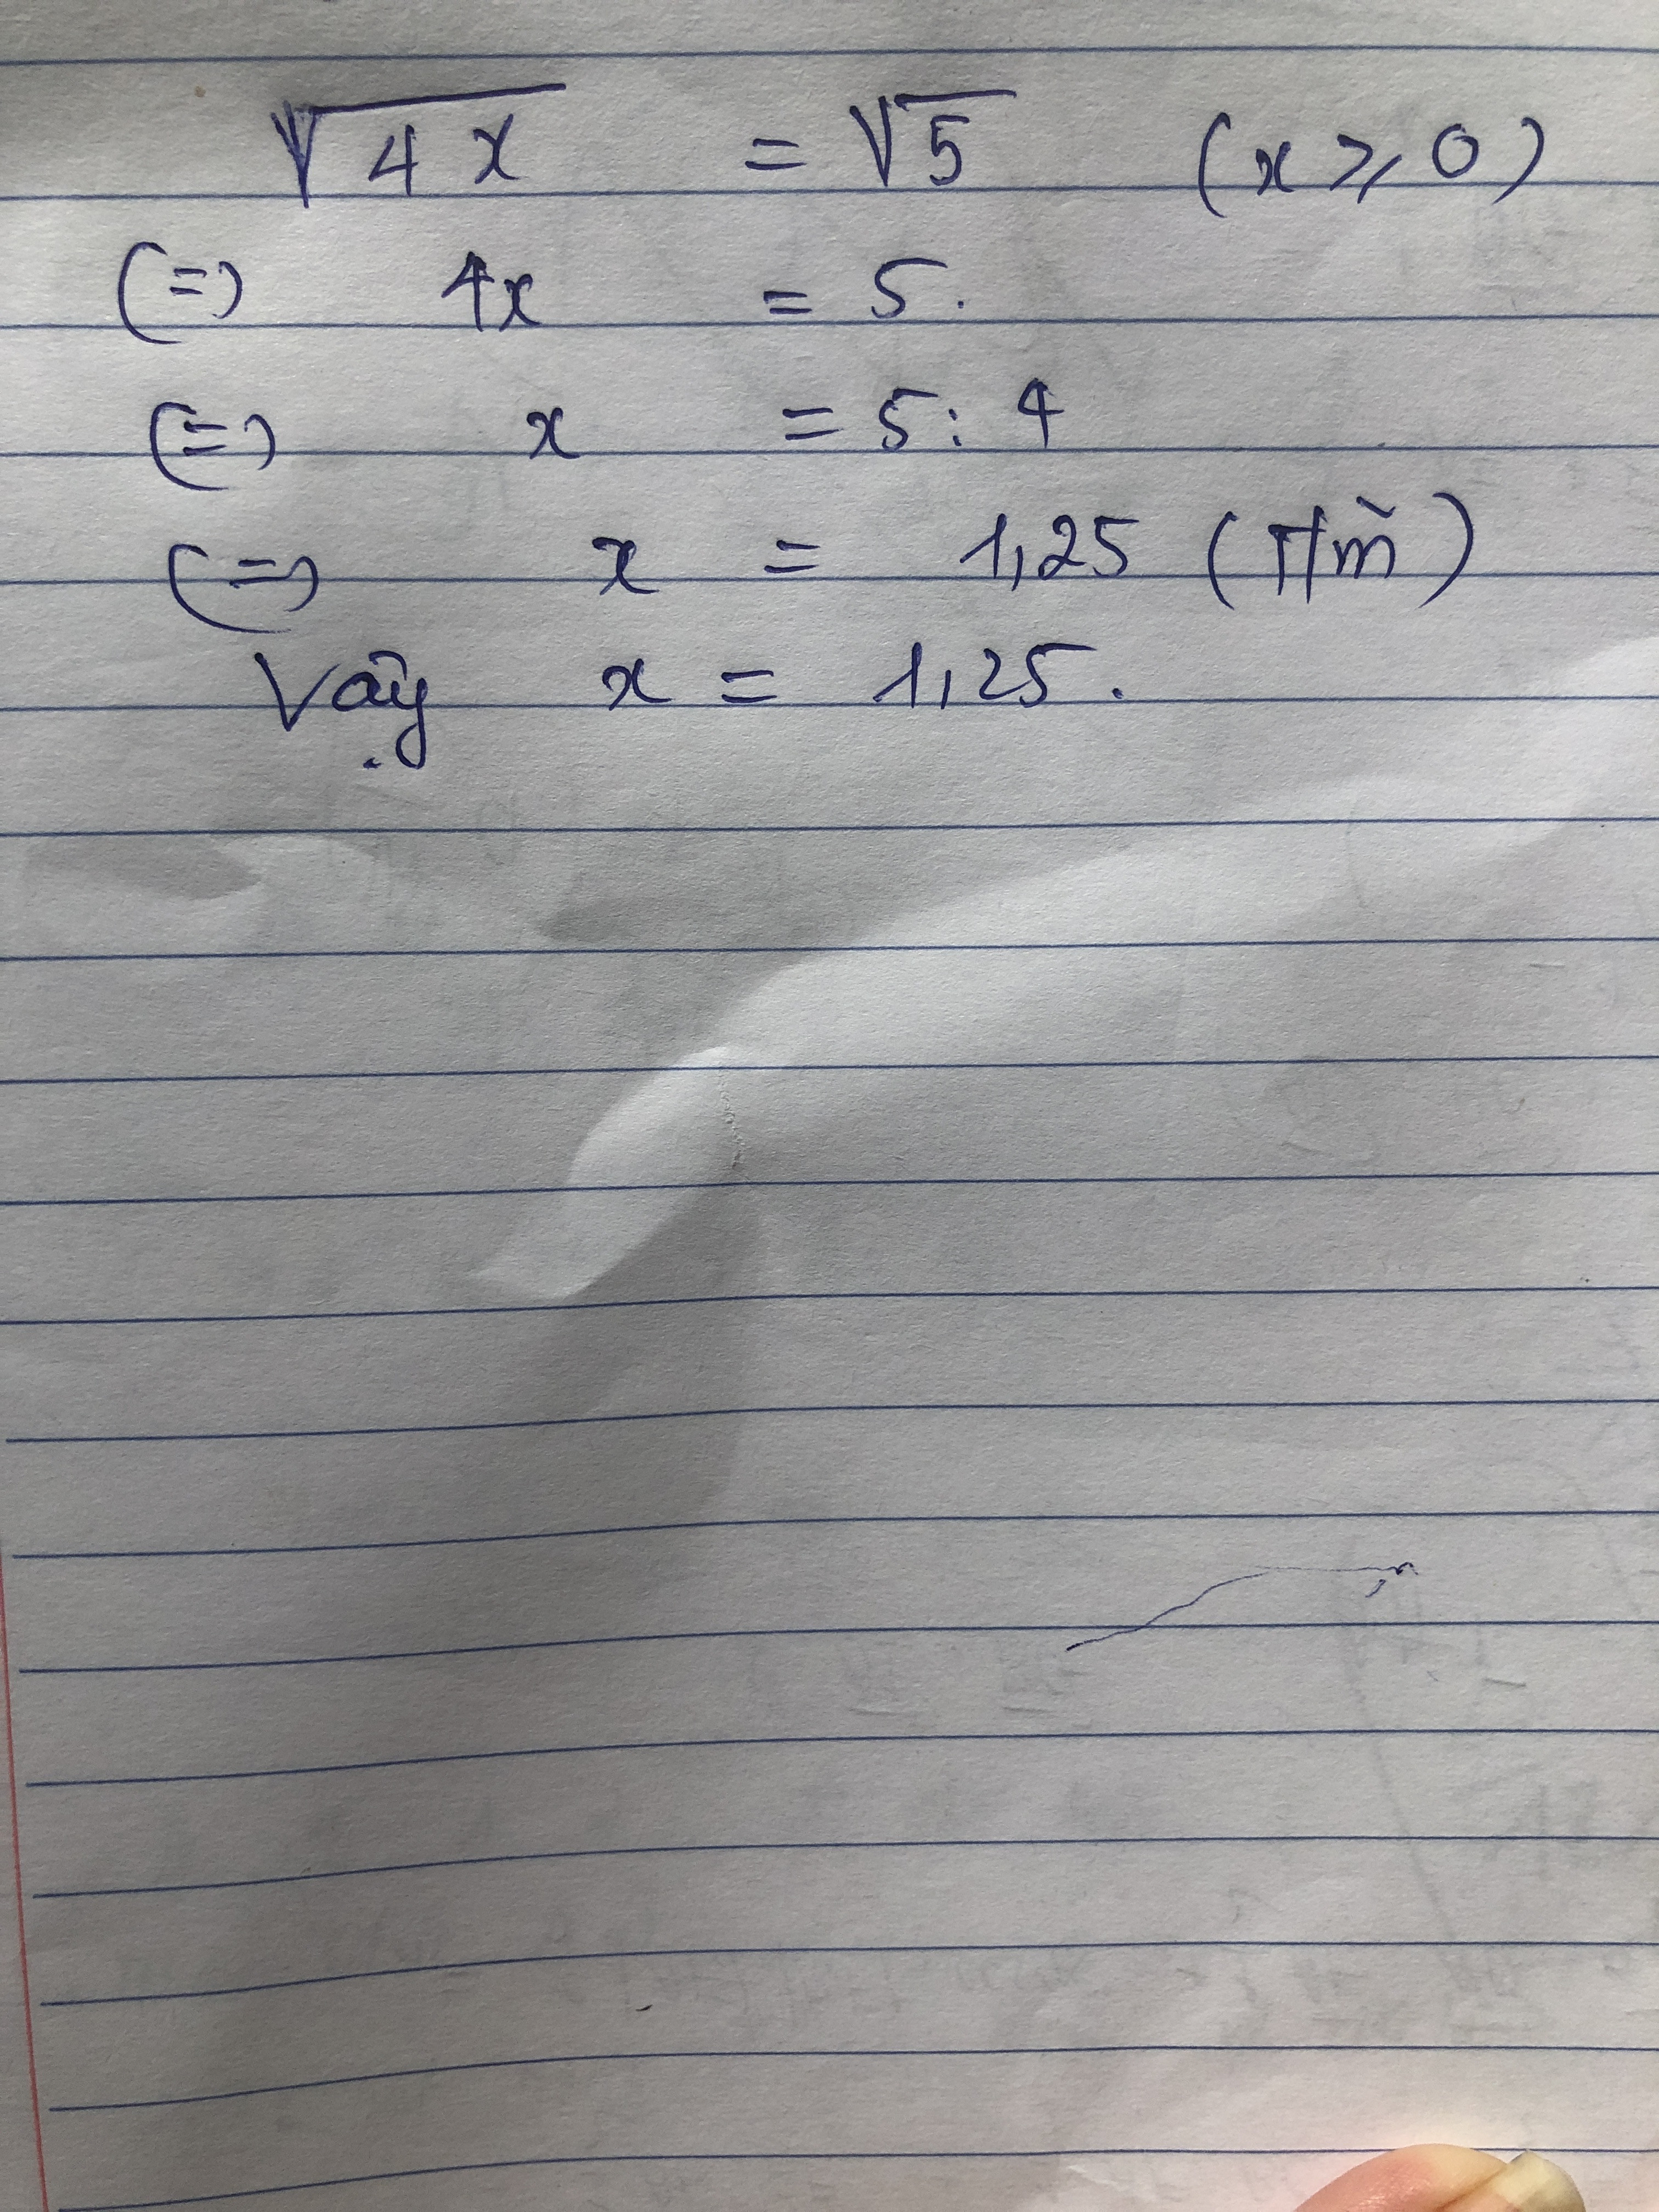 √4x = √5 (x ⩾ 0)
(=) 4x = 5.
(=) x = 5:4
(=) x = 1,25 (T/m̃)
Vậy x = 1,25.